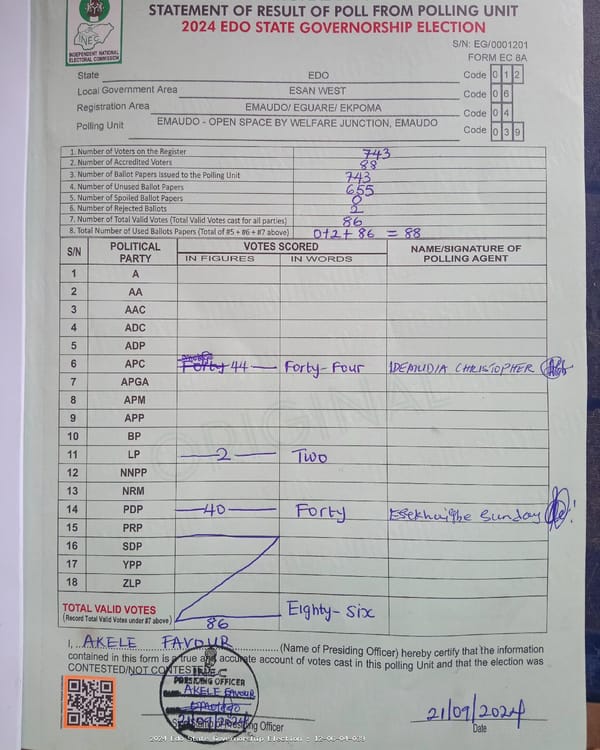 STATEMENT OF RESULT OF POLL FROM POLLING UNIT
2024 EDO STATE GOVERNORSHIP ELECTION
INEC
INDEPENDENT NATIONAL
ELECTORAL COMMISSION
S/N: EG/0001201
FORM EC 8A
State EDO Code 0 1 2
Local Government Area ESAN WEST Code 0 6
Registration Area EMAUDO/ EGUARE/ EKPOMA Code 0 4
Polling Unit EMAUDO - OPEN SPACE BY WELFARE JUNCTION, EMAUDO Code 0 3 9
1. Number of Voters on the Register 743
2. Number of Accredited Voters 88
3. Number of Ballot Papers Issued to the Polling Unit 743
4. Number of Unused Ballot Papers 655
5. Number of Spoiled Ballot Papers 0
6. Number of Rejected Ballots 2
7. Number of Total Valid Votes (Total Valid Votes cast for all parties) 86
8. Total Number of Used Ballots Papers (Total of #5 + #6 + #7 above) 0+2+86 = 88
S/N POLITICAL PARTY VOTES SCORED NAME/SIGNATURE OF POLLING AGENT
IN FIGURES IN WORDS
1 A
2 AA
3 AAC
4 ADC
5 ADP
6 APC Forty 44 Forty-Four IDEMUDIA CHRISTOPHER
7 APGA
8 APM
9 APP
10 BP
11 LP 2 Two
12 NNPP
13 NRM
14 PDP 40 Forty Esekhaighe Sunday
15 PRP
16 SDP
17 YPP
18 ZLP
ORIGINAL
TOTAL VALID VOTES
(Record Total Valid Votes under #7 above) 86 Eighty-Six
I, AKELE FAVOUR (Name of Presiding Officer) hereby certify that the information
contained in this form is a true and accurate account of votes cast in this polling Unit and that the election was
CONTESTED/NOT CONTESTED
PRESIDING OFFICER
AKELE FAVOUR
21/09/2024
Presiding Officer
21/09/2024
Date
2024 Edo State Governorship Election : 12-06-04-039